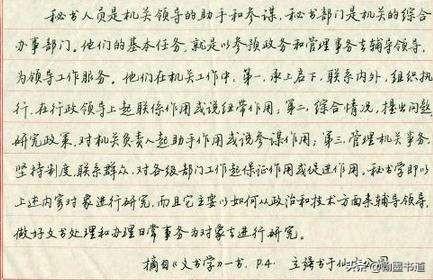 秘书人员是机关领导的助手和参谋，秘书部门是机关的综合
办事部门。他们的基本任务，就是以参预政务和管理事务去辅导领导，
为领导工作服务。他们在机关工作中，第一，承上启下，联系内外，组织执
行，在行政领导上起联系作用或说纽带作用；第二，综合情况，提出问题，
研究政策，对机关负责人起助手作用或说参谋作用；第三，管理机关事务，
坚持制度，联系群众，对各级部门工作起保证作用或促进作用。秘书学即以
上述内容对象进行研究，而且它主要以如何从政治和技术方面来辅导领导，
做好文书处理和办理日常事务为对象去进行研究。
摘自《文书学》一书，P.4.
头条 @翰墨书道